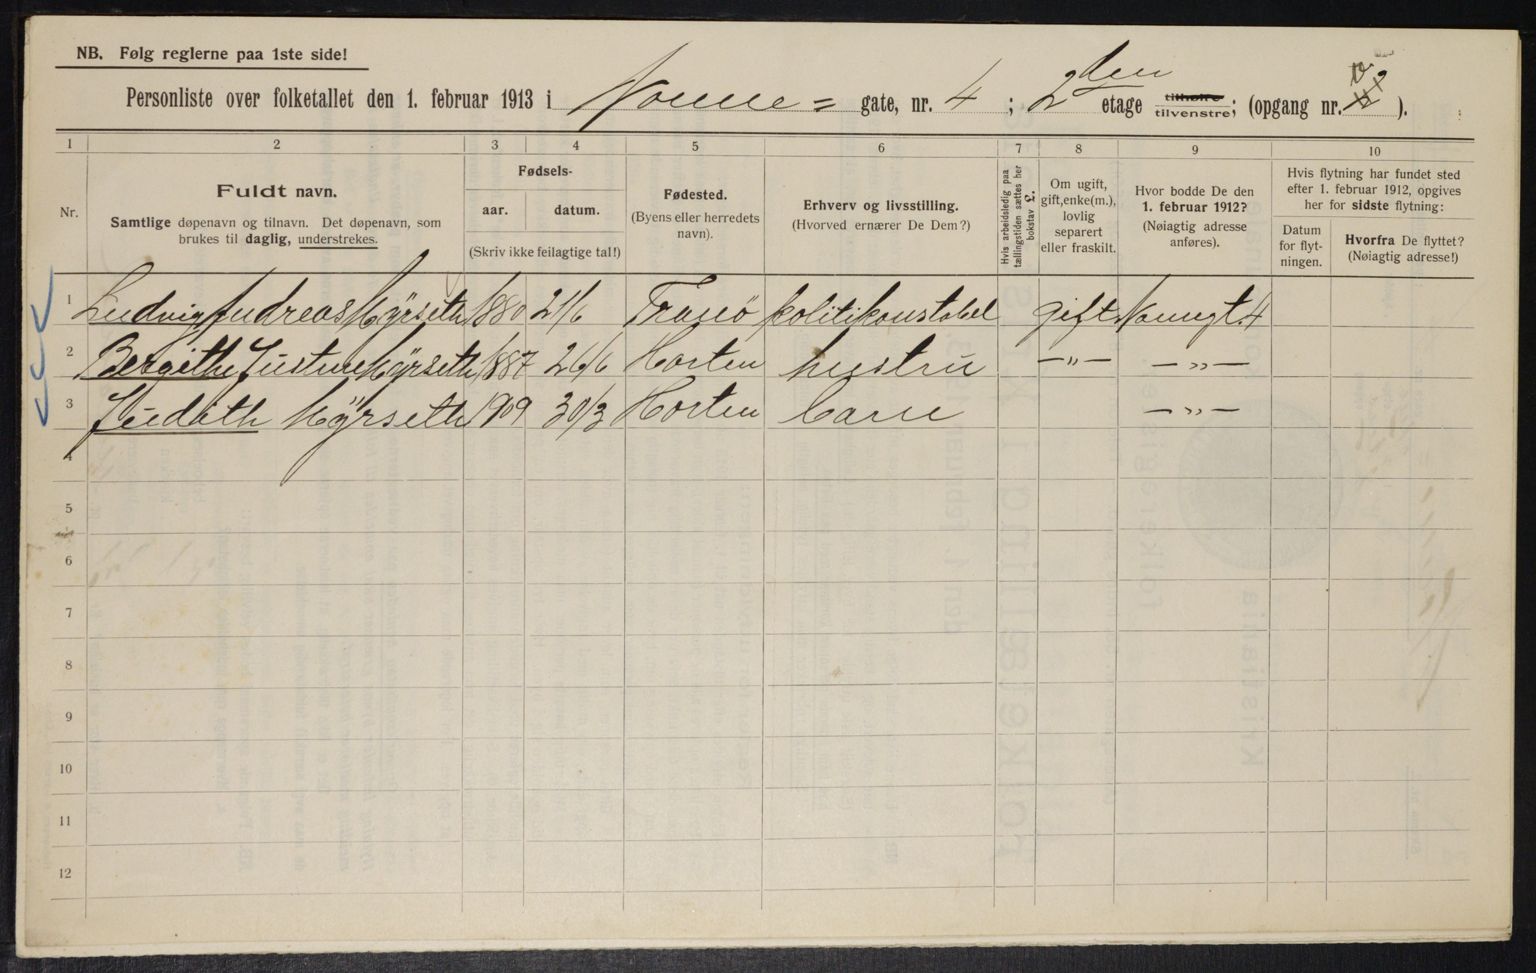 NB. Følg reglerne paa 1ste side!
Personliste over folketallet den 1. februar 1913 i Nonne = gate, nr. 4 ; 2den etage tilhøire tilvenstre; (opgang nr. 2 ).
1 2 3 4 5 6 7 8 9 10
Nr.
Fuldt navn.
Samtlige døpenavn og tilnavn. Det døpenavn, som
brukes til daglig, understrekes.
Fødsels-
aar. datum.
(Skriv ikke feilagtige tal!)
Fødested.
(Byens eller herredets
navn).
Erhverv og livsstilling.
(Hvorved ernærer De Dem?)
Hvis arbeidsledig paa
tællingstiden sættes her
bokstav £.
Om ugift,
gift,enke(m.),
lovlig
separert
eller fraskilt.
Hvor bodde De den
1. februar 1912?
(Nøiagtig adresse
anføres).
Hvis flytning har fundet sted
efter 1. februar 1912, opgives
her for sidste flytning:
Datum
for flyt-
ningen.
Hvorfra De flyttet?
(Nøiagtig adresse!)
1 Ludvig Andreas Myrseth 1880 21/6 Tranø politikonstabel gift Nonnegt. 4
2 Bergithe Justine Myrseth 1887 26/6 Horten hustru —„— —„—
3 Judith Myrseth 1909 30/3 Horten Barn —„—
4
5
6
7
8
9
10
11
12